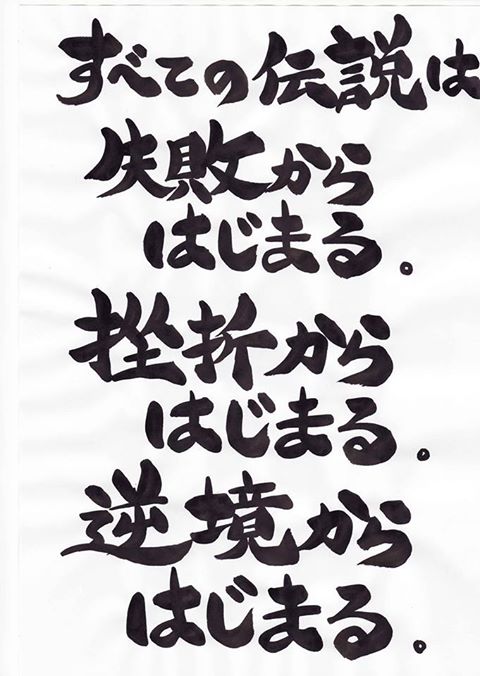 すべての伝説は
失敗から
はじまる。
挫折から
はじまる。
逆境から
はじまる。